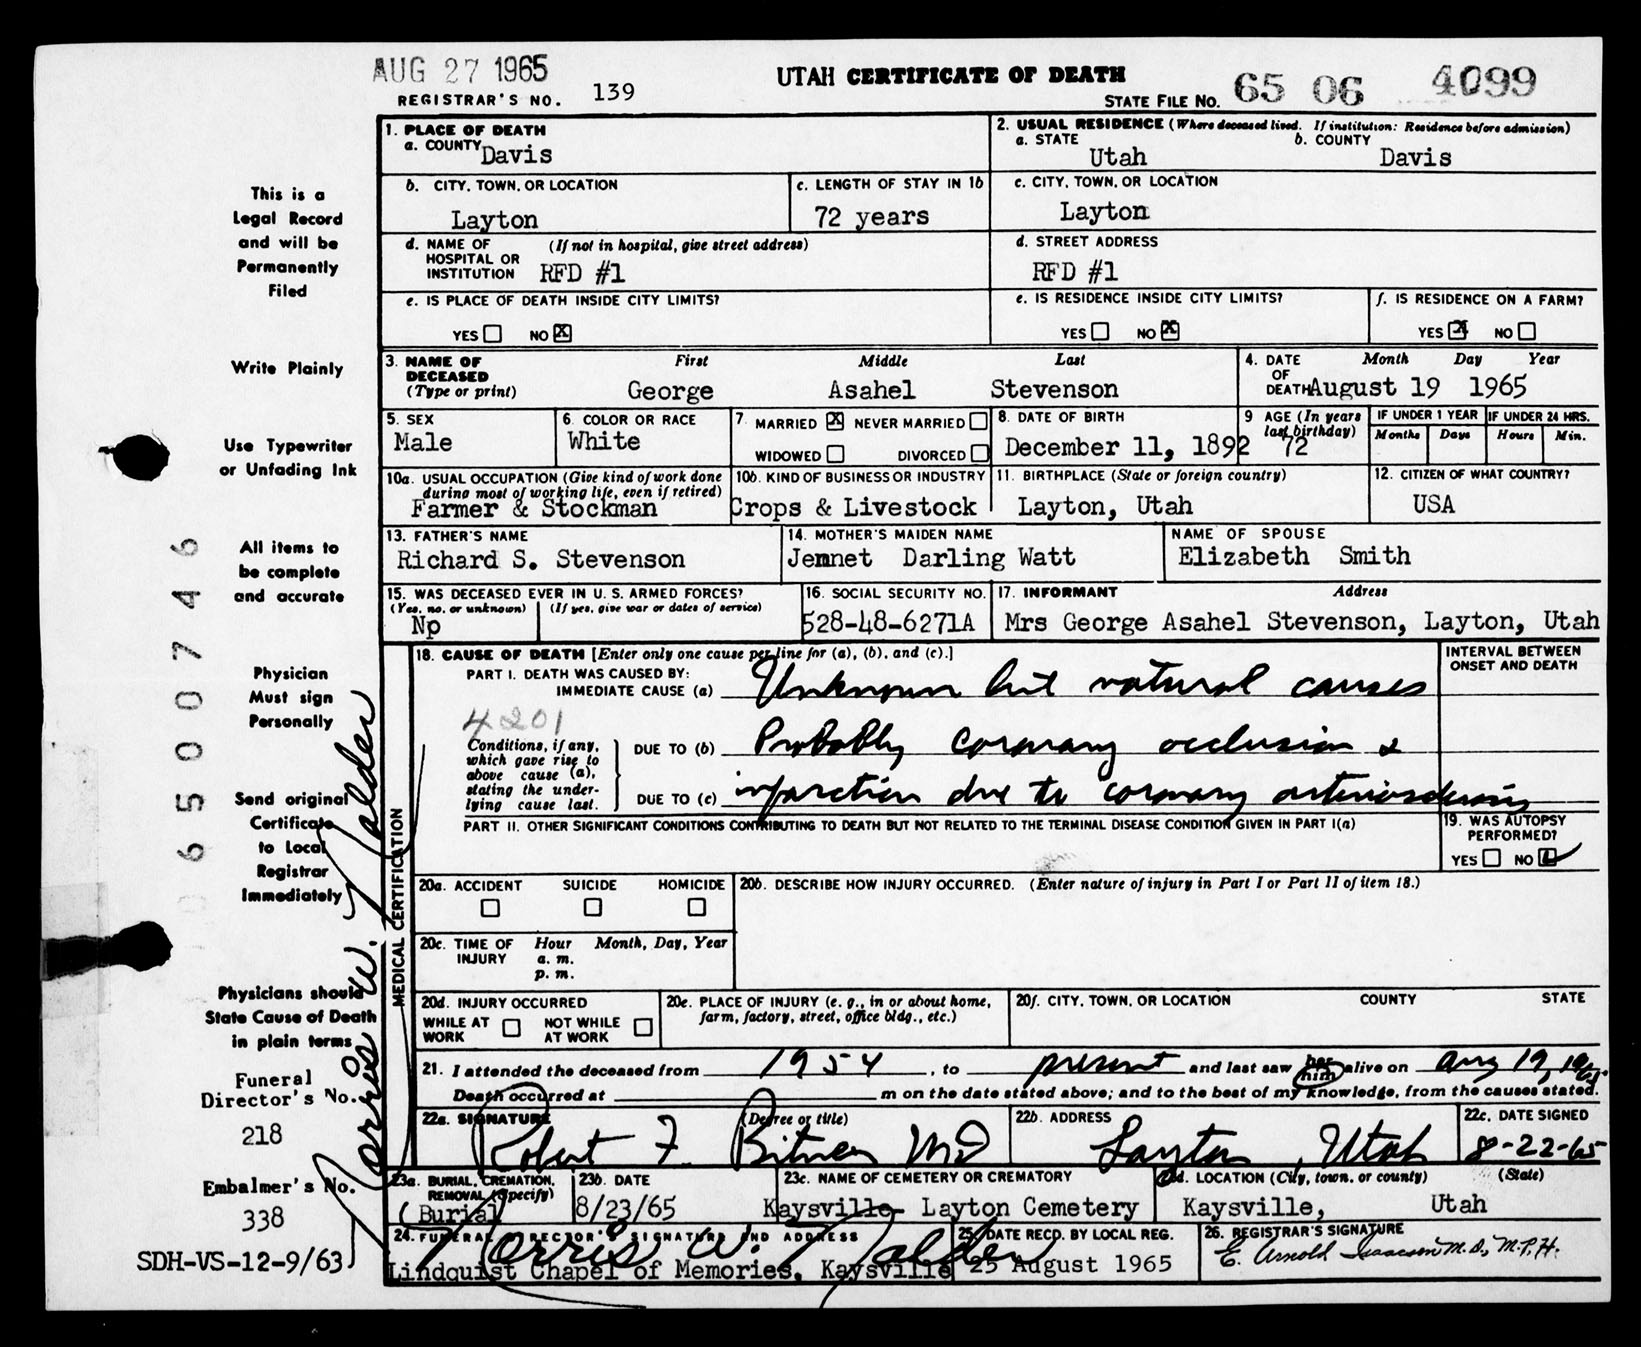 AUG 27 1965
UTAH CERTIFICATE OF DEATH
REGISTRAR'S NO. 139
STATE FILE NO. 65 06 4099
This is a
Legal Record
and will be
Permanently
Filed
Write Plainly
Use Typewriter
or Unfading Ink
All items to
be complete
and accurate
Physician
Must sign
Personally
Send original
Certificate
to Local
Registrar
Immediately
Physicians should
State Cause of Death
in plain terms
Funeral
Director's No.
218
Embalmer's No.
338
SDH-VS-12-9/63
06500746
Norris W. Nalder
1. PLACE OF DEATH
a. COUNTY Davis
2. USUAL RESIDENCE (Where deceased lived. If institution: Residence before admission)
a. STATE Utah b. COUNTY Davis
b. CITY, TOWN, OR LOCATION
Layton
c. LENGTH OF STAY IN 1b
72 years
c. CITY, TOWN, OR LOCATION
Layton
d. NAME OF HOSPITAL OR INSTITUTION (If not in hospital, give street address)
RFD #1
d. STREET ADDRESS
RFD #1
e. IS PLACE OF DEATH INSIDE CITY LIMITS?
YES NO X
e. IS RESIDENCE INSIDE CITY LIMITS?
YES NO X
f. IS RESIDENCE ON A FARM?
YES X NO
3. NAME OF DECEASED (Type or print) First Middle Last
George Asahel Stevenson
4. DATE OF DEATH Month Day Year
August 19 1965
5. SEX
Male
6. COLOR OR RACE
White
7 MARRIED X NEVER MARRIED
WIDOWED DIVORCED
8. DATE OF BIRTH
December 11, 1892
9 AGE (In years last birthday)
72
IF UNDER 1 YEAR
Months Days
IF UNDER 24 HRS.
Hours Min.
10a. USUAL OCCUPATION (Give kind of work done during most of working life, even if retired)
Farmer & Stockman
10b. KIND OF BUSINESS OR INDUSTRY
Crops & Livestock
11. BIRTHPLACE (State or foreign country)
Layton, Utah
12. CITIZEN OF WHAT COUNTRY?
USA
13. FATHER'S NAME
Richard S. Stevenson
14. MOTHER'S MAIDEN NAME
Jennet Darling Watt
NAME OF SPOUSE
Elizabeth Smith
15. WAS DECEASED EVER IN U. S. ARMED FORCES?
(Yes, no, or unknown) (If yes, give war or dates of service)
Np
16. SOCIAL SECURITY NO.
528-48-6271A
17. INFORMANT Address
Mrs George Asahel Stevenson, Layton, Utah
MEDICAL CERTIFICATION
18. CAUSE OF DEATH [Enter only one cause per line for (a), (b), and (c).]
INTERVAL BETWEEN ONSET AND DEATH
PART I. DEATH WAS CAUSED BY:
IMMEDIATE CAUSE (a) Unknown but natural causes
4201
Conditions, if any, which gave rise to above cause (a), stating the under-lying cause last.
DUE TO (b) Probably coronary occlusion &
DUE TO (c) infarction due to coronary arteriosclerosis
PART II. OTHER SIGNIFICANT CONDITIONS CONTRIBUTING TO DEATH BUT NOT RELATED TO THE TERMINAL DISEASE CONDITION GIVEN IN PART I(a)
19. WAS AUTOPSY PERFORMED?
YES NO
20a. ACCIDENT SUICIDE HOMICIDE
20b. DESCRIBE HOW INJURY OCCURRED. (Enter nature of injury in Part I or Part II of item 18.)
20c. TIME OF INJURY Hour Month, Day, Year
a. m.
p. m.
20d. INJURY OCCURRED
WHILE AT WORK NOT WHILE AT WORK
20e. PLACE OF INJURY (e. g., in or about home, farm, factory, street, office bldg., etc.)
20f. CITY, TOWN, OR LOCATION COUNTY STATE
21. I attended the deceased from 1954, to present and last saw her him alive on Aug 19, 1965.
Death occurred at m on the date stated above; and to the best of my knowledge, from the causes stated.
22a. SIGNATURE (Degree or title)
Robert F. Bitner MD
22b. ADDRESS
Layton, Utah
22c. DATE SIGNED
8-22-65
23a. BURIAL, CREMATION, REMOVAL (Specify)
Burial
23b. DATE
8/23/65
23c. NAME OF CEMETERY OR CREMATORY
Kaysville Layton Cemetery
23d. LOCATION (City, town, or county) (State)
Kaysville, Utah
24. FUNERAL DIRECTOR'S SIGNATURE AND ADDRESS
Norris W. Nalder
Lindquist Chapel of Memories, Kaysville
25. DATE RECD. BY LOCAL REG.
25 August 1965
26. REGISTRAR'S SIGNATURE
E. Arnold Isaacson M.D., M.P.H.